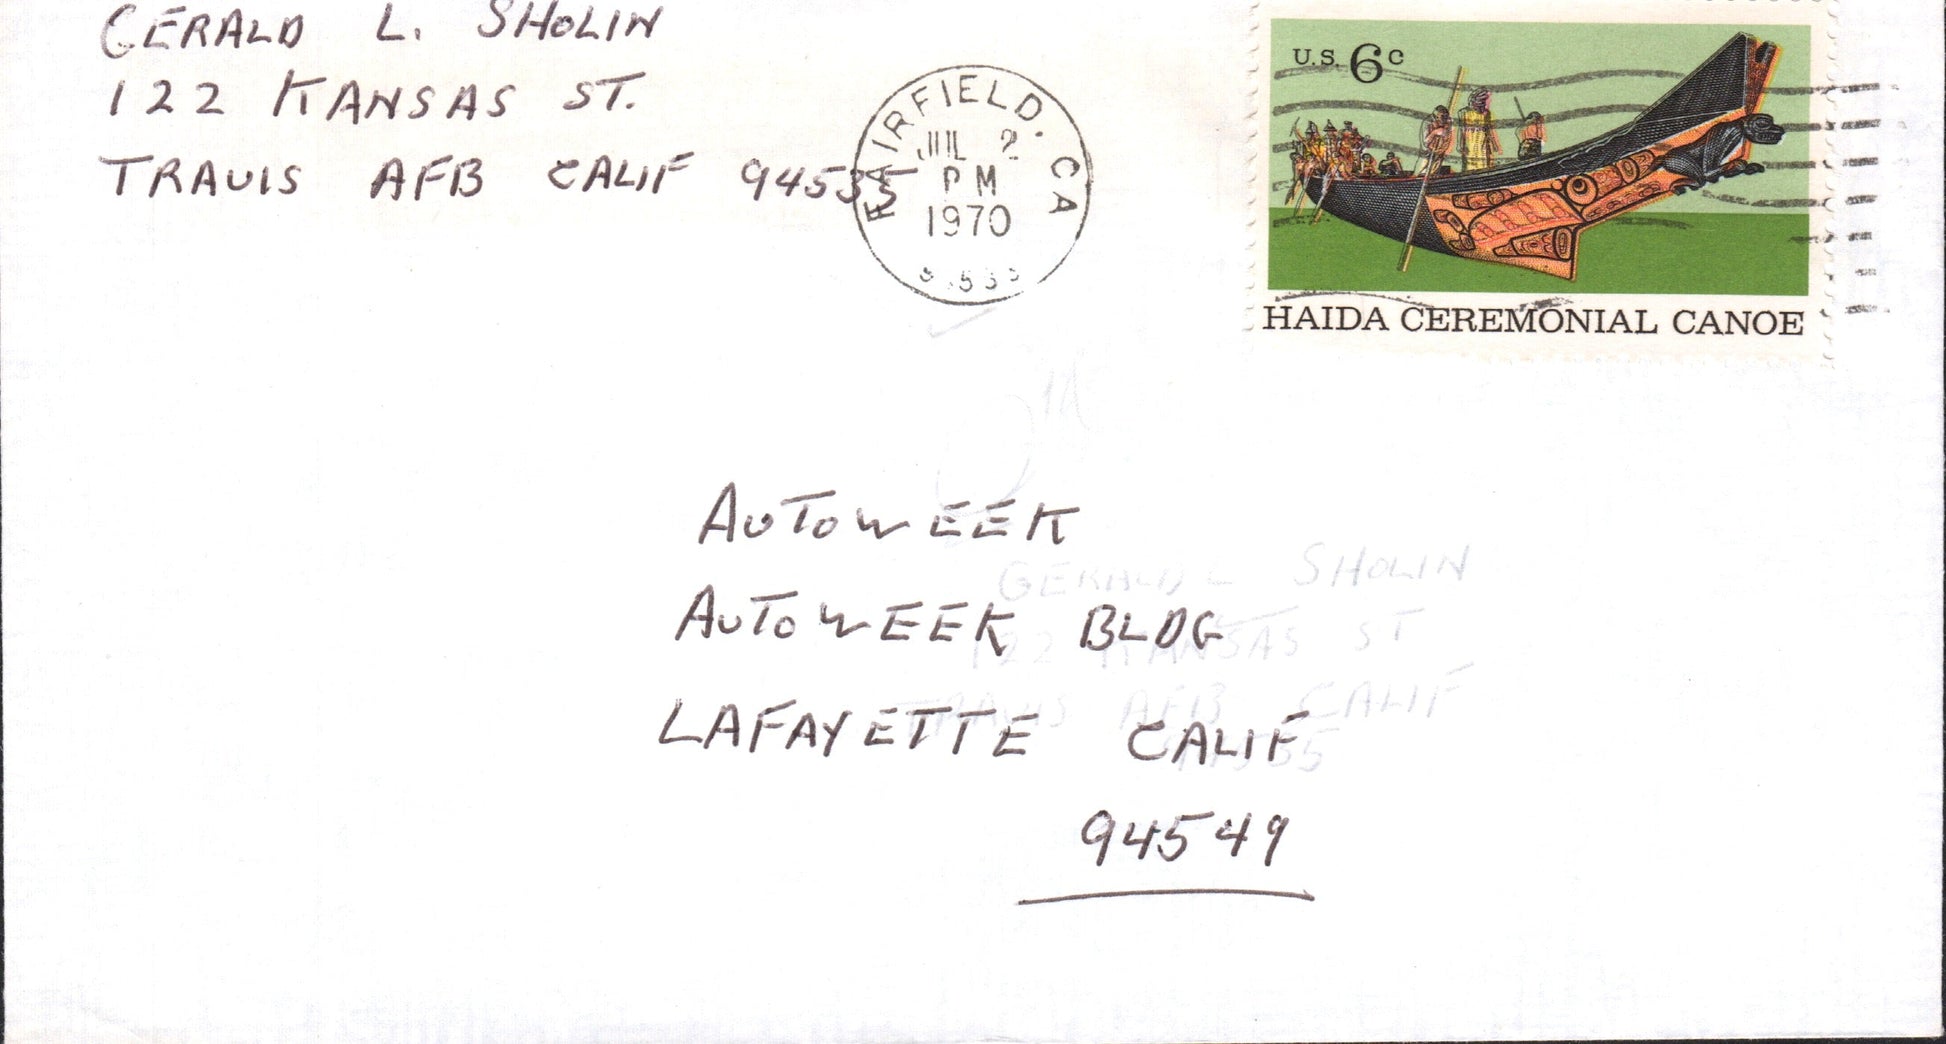 GERALD L. SHOLIN
122 KANSAS ST.
TRAVIS AFB CALIF 94535
FAIRFIELD. CA
JUL 2
PM
1970
U.S. 6c
HAIDA CEREMONIAL CANOE
AUTOWEEK
AUTOWEEK BLDG
LAFAYETTE CALIF
94549
GERALD L SHOLIN
122 KANSAS ST
TRAVIS AFB CALIF